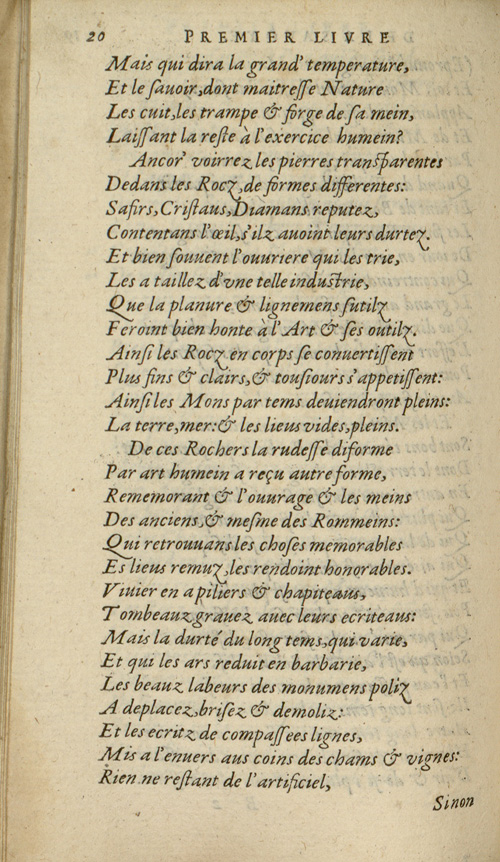 20 PREMIER LIVRE
Mais qui dira la grand' temperature,
Et le sauoir, dont maitresse Nature
Les cuit, les trampe & forge de sa mein,
Laissant la reste à l'exercice humein?
Ancor' voirrez les pierres transparentes
Dedans les Rocz, de formes differentes:
Safirs, Cristaus, Diamans reputez,
Contentans l'œil, s'ilz auoint leurs durtez.
Et bien souuent l'ouuriere qui les trie,
Les a taillez d'vne telle industrie,
Que la planure & lignemens sutilz
Feroint bien honte à l'Art & ses outilz.
Ainsi les Rocz en corps se conuertissent
Plus fins & clairs, & tousiours s'appetissent:
Ainsi les Mons par tems deuiendront pleins:
La terre, mer: & les lieus vides, pleins.
De ces Rochers la rudesse diforme
Par art humein a reçu autre forme,
Rememorant & l'ouurage & les meins
Des anciens, & mesme des Rommeins:
Qui retrouuans les choses memorables
Es lieus remuz, les rendoint honorables.
Viuier en a piliers & chapiteaus,
Tombeauz grauez auec leurs ecriteaus:
Mais la durté du long tems, qui varie,
Et qui les ars reduit en barbarie,
Les beauz labeurs des monumens poliz
A deplacez, brisez & demoliz:
Et les ecritz de compassees lignes,
Mis a l'enuers aus coins des chams & vignes:
Rien ne restant de l'artificiel,
Sinon